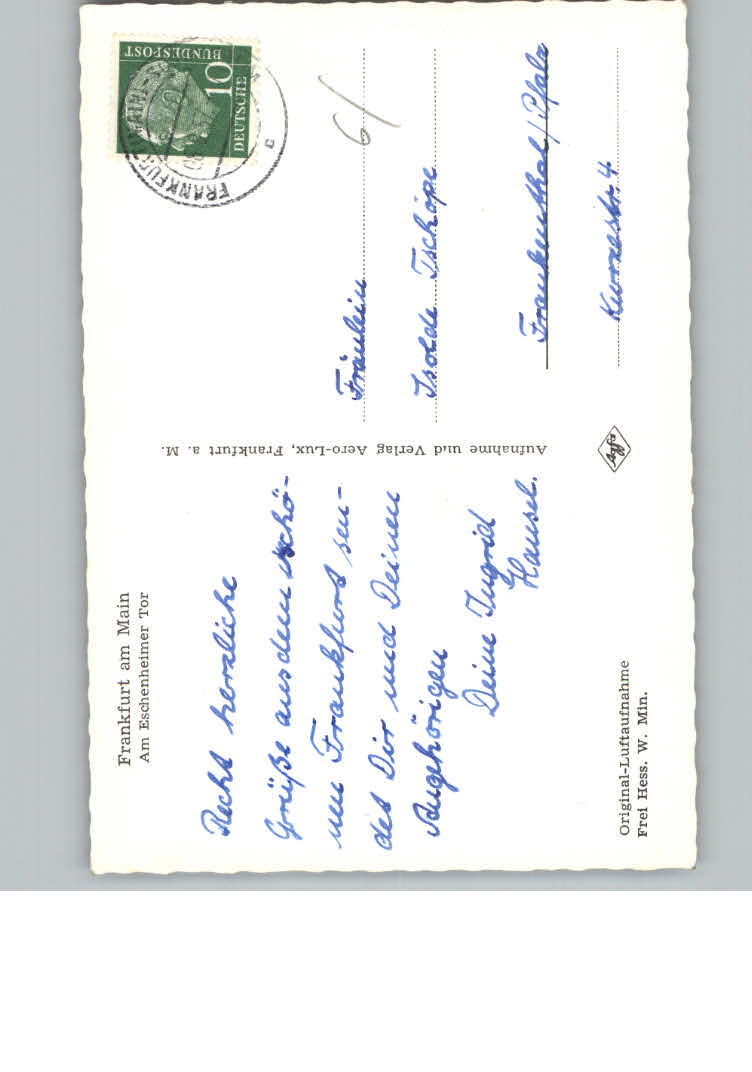 Frankfurt am Main
Am Eschenheimer Tor
Recht herzliche
Grüße aus dem schö-
nen Frankfurt sen-
det Dir und Deinen
Angehörigen
Deine Ingrid
Hansel.
Original-Luftaufnahme
Frei Hess. W. Min.
Aufnahme und Verlag Aero-Lux, Frankfurt a. M.
afka
DEUTSCHE
BUNDESPOST
10
FRANKFURT (MAIN)
c
6/
Fräulein
Isolde Tschöpe
Frankenthal/Pfalz
Kurzestr. 4